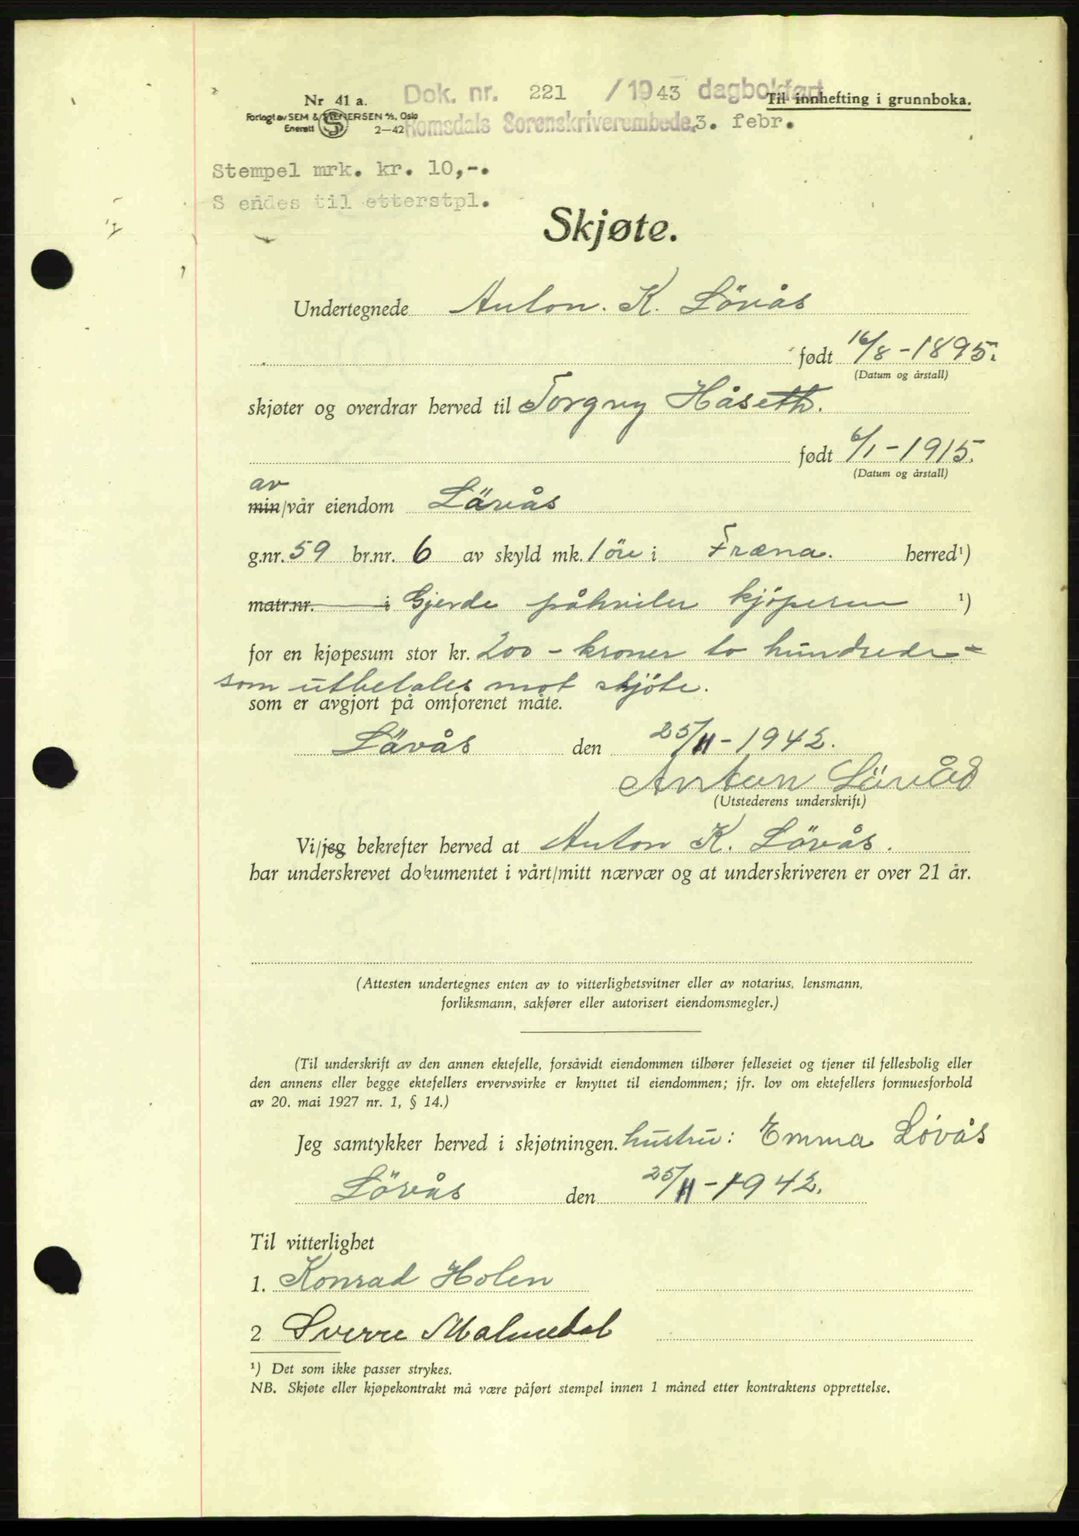 Nr 41 a. Dok. nr. 221 / 1943 dagbokført Til innhefting i grunnboka.
Forlagt av SEM & STENERSEN A/S, Oslo
Enerett S 2—42 Romsdals Sorenskriverembede, 3. febr.
Stempel mrk. kr. 10,-.
S endes til etterstpl.
Skjøte.
Undertegnede Anton. K. Lövås
født 16/8-1895.
(Datum og årstall)
skjøter og overdrar herved til Torgny Håseth.
født 6/1-1915.
(Datum og årstall)
av
min/vår eiendom Lövås
g.nr. 59 br.nr. 6 av skyld mk. 1 öre i Fræna. herred¹)
matr.nr. i Gjerde påhviler kjöperen ¹)
for en kjøpesum stor kr. 200 - kroner to hundrede -
som utbetales mot skjöte.
som er avgjort på omforenet måte.
Lövås den 25/11-1942.
Anton Lövås
(Utstederens underskrift)
Vi/jeg bekrefter herved at Anton K. Lövås.
har underskrevet dokumentet i vårt/mitt nærvær og at underskriveren er over 21 år.
(Attesten undertegnes enten av to vitterlighetsvitner eller av notarius, lensmann,
forliksmann, sakfører eller autorisert eiendomsmegler.)
(Til underskrift av den annen ektefelle, forsåvidt eiendommen tilhører felleseiet og tjener til fellesbolig eller
den annens eller begge ektefellers ervervsvirke er knyttet til eiendommen; jfr. lov om ektefellers formuesforhold
av 20. mai 1927 nr. 1, § 14.)
Jeg samtykker herved i skjøtningen. hustru: Emma Lövås
Lövås den 25/11-1942.
Til vitterlighet
1. Konrad Holen
2 Sverre Malmedal
¹) Det som ikke passer strykes.
NB. Skjøte eller kjøpekontrakt må være påført stempel innen 1 måned etter kontraktens opprettelse.